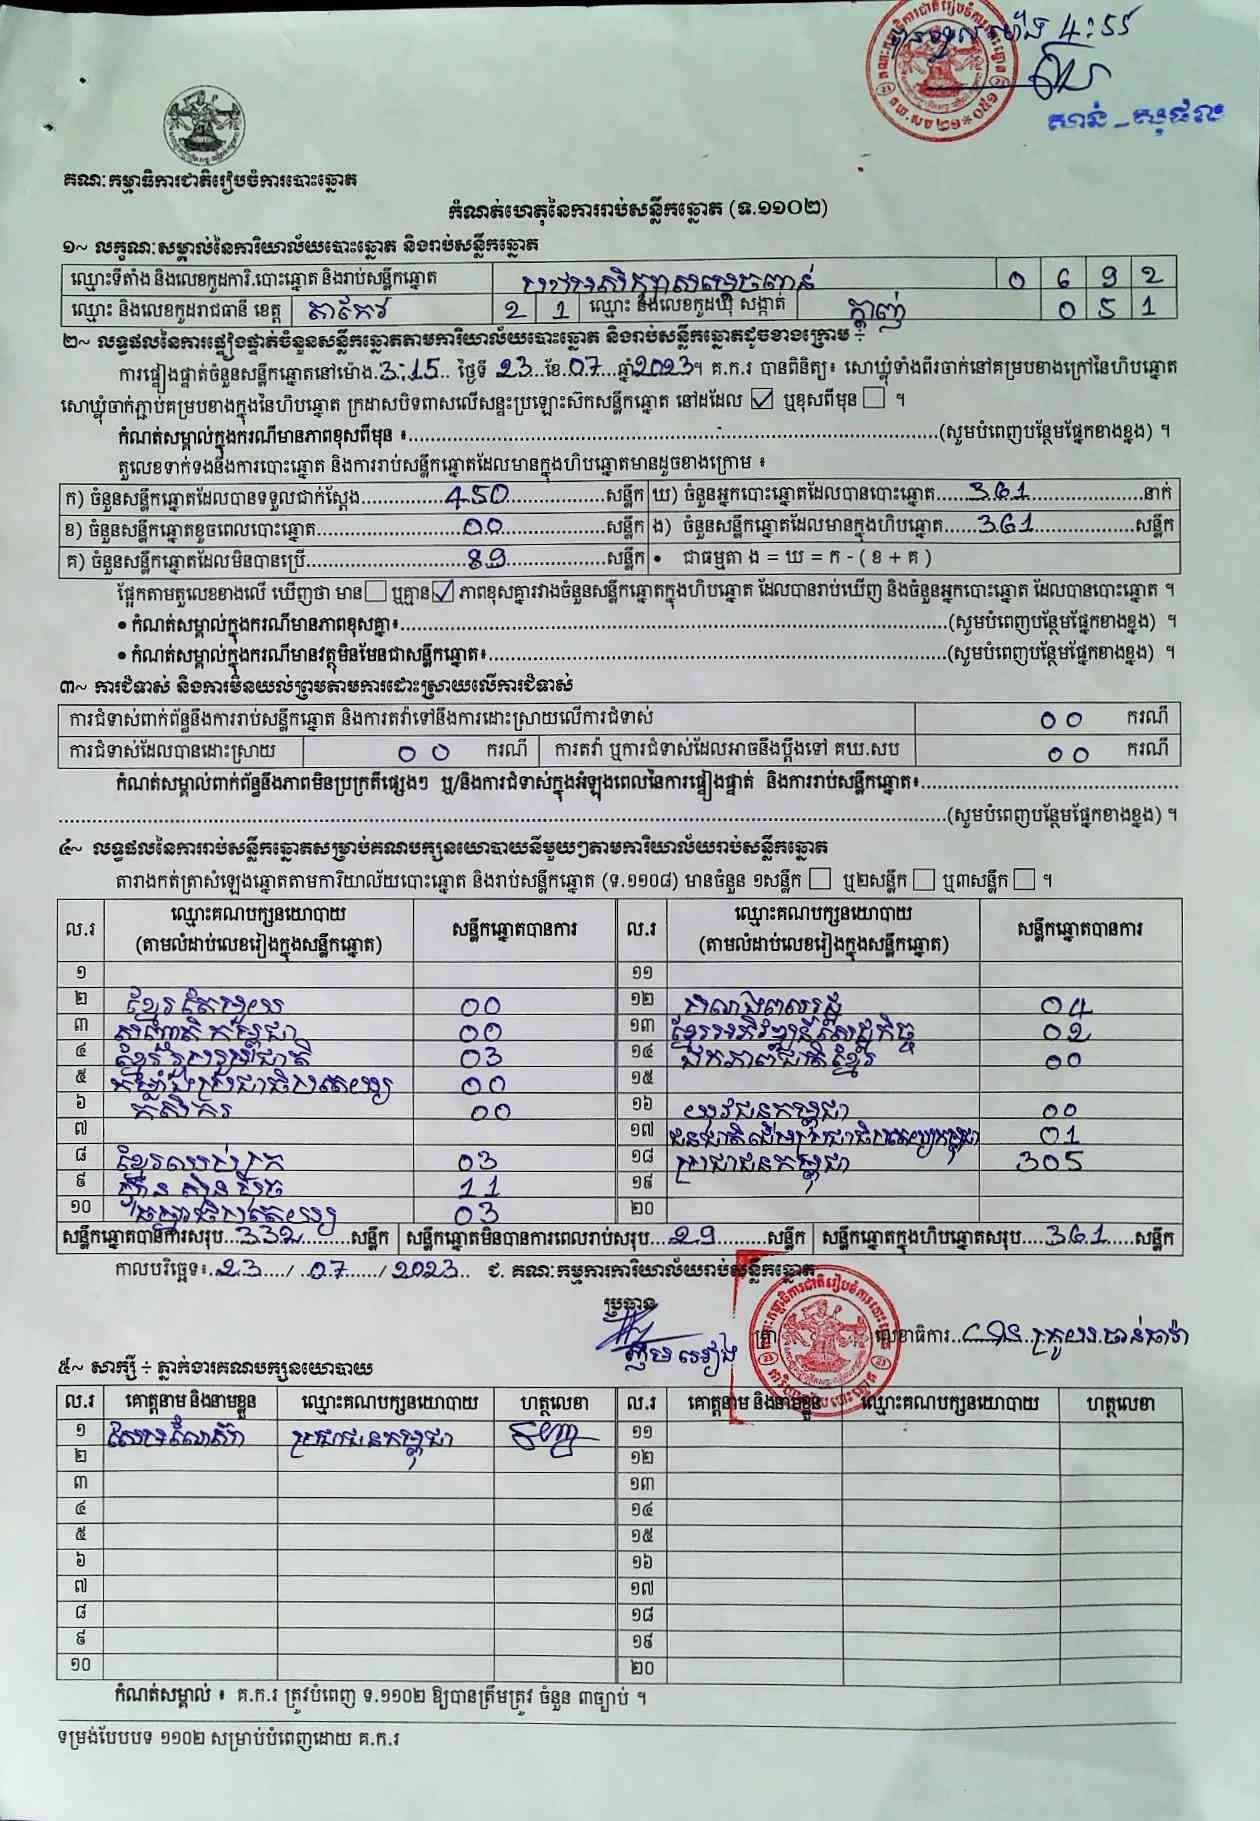 4:55
សាន់ - សុផល
គណៈកម្មាធិការជាតិរៀបចំការបោះឆ្នោត
កំណត់ហេតុនៃការរាប់សន្លឹកឆ្នោត (ទ.១១០២)
១~ លក្ខណៈសម្គាល់នៃការិយាល័យបោះឆ្នោត និងរាប់សន្លឹកឆ្នោត
ឈ្មោះទីតាំង និងលេខកូដការិ.បោះឆ្នោត និងរាប់សន្លឹកឆ្នោត 0 6 9 2
ឈ្មោះ និងលេខកូដរាជធានី ខេត្ត តាកែវ 2 1 ឈ្មោះ និងលេខកូដឃុំ សង្កាត់ ក្ពាញ់ 0 5 1
២~ លទ្ធផលនៃការផ្ទៀងផ្ទាត់ចំនួនសន្លឹកឆ្នោតតាមការិយាល័យបោះឆ្នោត និងរាប់សន្លឹកឆ្នោតដូចខាងក្រោម ÷
ការផ្ទៀងផ្ទាត់ចំនួនសន្លឹកឆ្នោតនៅម៉ោង.3:15.. ថ្ងៃទី 23...ខែ.07...ឆ្នាំ2023។ គ.ក.រ បានពិនិត្យ៖ សោឃ្លុំទាំងពីរចាក់នៅគម្របខាងក្រៅនៃហិបឆ្នោត
សោឃ្លុំចាក់ភ្ជាប់គម្របខាងក្នុងនៃហិបឆ្នោត ក្រដាសបិទពាសលើសន្ទះប្រឡោះស៊កសន្លឹកឆ្នោត នៅដដែល ☑ ឬខុសពីមុន ☐ ។
កំណត់សម្គាល់ក្នុងករណីមានភាពខុសពីមុន ៖........(សូមបំពេញបន្ថែមផ្នែកខាងខ្នង) ។
តួលេខទាក់ទងនឹងការបោះឆ្នោត និងការរាប់សន្លឹកឆ្នោតដែលមានក្នុងហិបឆ្នោតមានដូចខាងក្រោម ៖
ក) ចំនួនសន្លឹកឆ្នោតដែលបានទទួលជាក់ស្តែង........450........សន្លឹក ឃ) ចំនួនអ្នកបោះឆ្នោតដែលបានបោះឆ្នោត......361........នាក់
ខ) ចំនួនសន្លឹកឆ្នោតខូចពេលបោះឆ្នោត........00........សន្លឹក ង) ចំនួនសន្លឹកឆ្នោតដែលមានក្នុងហិបឆ្នោត......361........សន្លឹក
គ) ចំនួនសន្លឹកឆ្នោតដែលមិនបានប្រើ........89........សន្លឹក • ជាធម្មតា ង = ឃ = ក - ( ខ + គ )
ផ្អែកតាមតួលេខខាងលើ ឃើញថា មាន ☐ ឬគ្មាន ☑ ភាពខុសគ្នារវាងចំនួនសន្លឹកឆ្នោតក្នុងហិបឆ្នោត ដែលបានរាប់ឃើញ និងចំនួនអ្នកបោះឆ្នោត ដែលបានបោះឆ្នោត ។
• កំណត់សម្គាល់ក្នុងករណីមានភាពខុសគ្នា៖........(សូមបំពេញបន្ថែមផ្នែកខាងខ្នង) ។
• កំណត់សម្គាល់ក្នុងករណីមានវត្ថុមិនមែនជាសន្លឹកឆ្នោត៖........(សូមបំពេញបន្ថែមផ្នែកខាងខ្នង) ។
៣~ ការជំទាស់ និងការមិនយល់ព្រមតាមការដោះស្រាយលើការជំទាស់
ការជំទាស់ពាក់ព័ន្ធនឹងការរាប់សន្លឹកឆ្នោត និងការតវ៉ាទៅនឹងការដោះស្រាយលើការជំទាស់ 00 ករណី
ការជំទាស់ដែលបានដោះស្រាយ 00 ករណី ការតវ៉ា ឬការជំទាស់ដែលអាចនឹងប្តឹងទៅ គឃ.សប 00 ករណី
កំណត់សម្គាល់ពាក់ព័ន្ធនឹងភាពមិនប្រក្រតីផ្សេងៗ ឬ/និងការជំទាស់ក្នុងអំឡុងពេលនៃការផ្ទៀងផ្ទាត់ និងការរាប់សន្លឹកឆ្នោត៖........
........(សូមបំពេញបន្ថែមផ្នែកខាងខ្នង) ។
៤~ លទ្ធផលនៃការរាប់សន្លឹកឆ្នោតសម្រាប់គណបក្សនយោបាយនីមួយៗតាមការិយាល័យរាប់សន្លឹកឆ្នោត
តារាងកត់ត្រាសំឡេងឆ្នោតតាមការិយាល័យបោះឆ្នោត និងរាប់សន្លឹកឆ្នោត (ទ.១១០៨) មានចំនួន ១សន្លឹក ☐ ឬ២សន្លឹក ☐ ឬ៣សន្លឹក ☐ ។
ល.រ ឈ្មោះគណបក្សនយោបាយ សន្លឹកឆ្នោតបានការ ល.រ ឈ្មោះគណបក្សនយោបាយ សន្លឹកឆ្នោតបានការ
(តាមលំដាប់លេខរៀងក្នុងសន្លឹកឆ្នោត) (តាមលំដាប់លេខរៀងក្នុងសន្លឹកឆ្នោត)
១ ១១
២ ខ្មែរតែមួយ 00 ១២ សំណាងពលរដ្ឋ 04
៣ សញ្ជាតិកម្ពុជា 00 ១៣ ខ្មែរអភិវឌ្ឍន៍សេដ្ឋកិច្ច 02
៤ ខ្មែររួបរួមជាតិ 03 ១៤ ឯកភាពជាតិខ្មែរ 00
៥ កម្លាំងប្រជាធិបតេយ្យ 00 ១៥
៦ កសិករ 00 ១៦ យុវជនកម្ពុជា 00
៧ ១៧ ជនជាតិដើមប្រជាធិបតេយ្យកម្ពុជា 01
៨ ខ្មែរឈប់ក្រ 03 ១៨ ប្រជាជនកម្ពុជា 305
៩ ហ្វ៊ុនស៊ិនប៉ិច 11 ១៩
១០ ធម្មាធិបតេយ្យ 03 ២០
សន្លឹកឆ្នោតបានការសរុប...332........សន្លឹក សន្លឹកឆ្នោតមិនបានការពេលរាប់សរុប...29........សន្លឹក សន្លឹកឆ្នោតក្នុងហិបឆ្នោតសរុប...361......សន្លឹក
កាលបរិច្ឆេទ៖..23..../..07....../2023.. ៩. គណៈកម្មការការិយាល័យរាប់សន្លឹកឆ្នោត
ប្រធាន ត្រា លេខាធិការ
៥~ សាក្សី ÷ ភ្នាក់ងារគណបក្សនយោបាយ
ល.រ គោត្តនាម និងនាមខ្លួន ឈ្មោះគណបក្សនយោបាយ ហត្ថលេខា ល.រ គោត្តនាម និងនាមខ្លួន ឈ្មោះគណបក្សនយោបាយ ហត្ថលេខា
១ ប្រជាជនកម្ពុជា ១១
២ ១២
៣ ១៣
៤ ១៤
៥ ១៥
៦ ១៦
៧ ១៧
៨ ១៨
៩ ១៩
១០ ២០
កំណត់សម្គាល់ ៖ គ.ក.រ ត្រូវបំពេញ ទ.១១០២ ឱ្យបានត្រឹមត្រូវ ចំនួន ៣ច្បាប់ ។
ទម្រង់បែបបទ ១១០២ សម្រាប់បំពេញដោយ គ.ក.រ